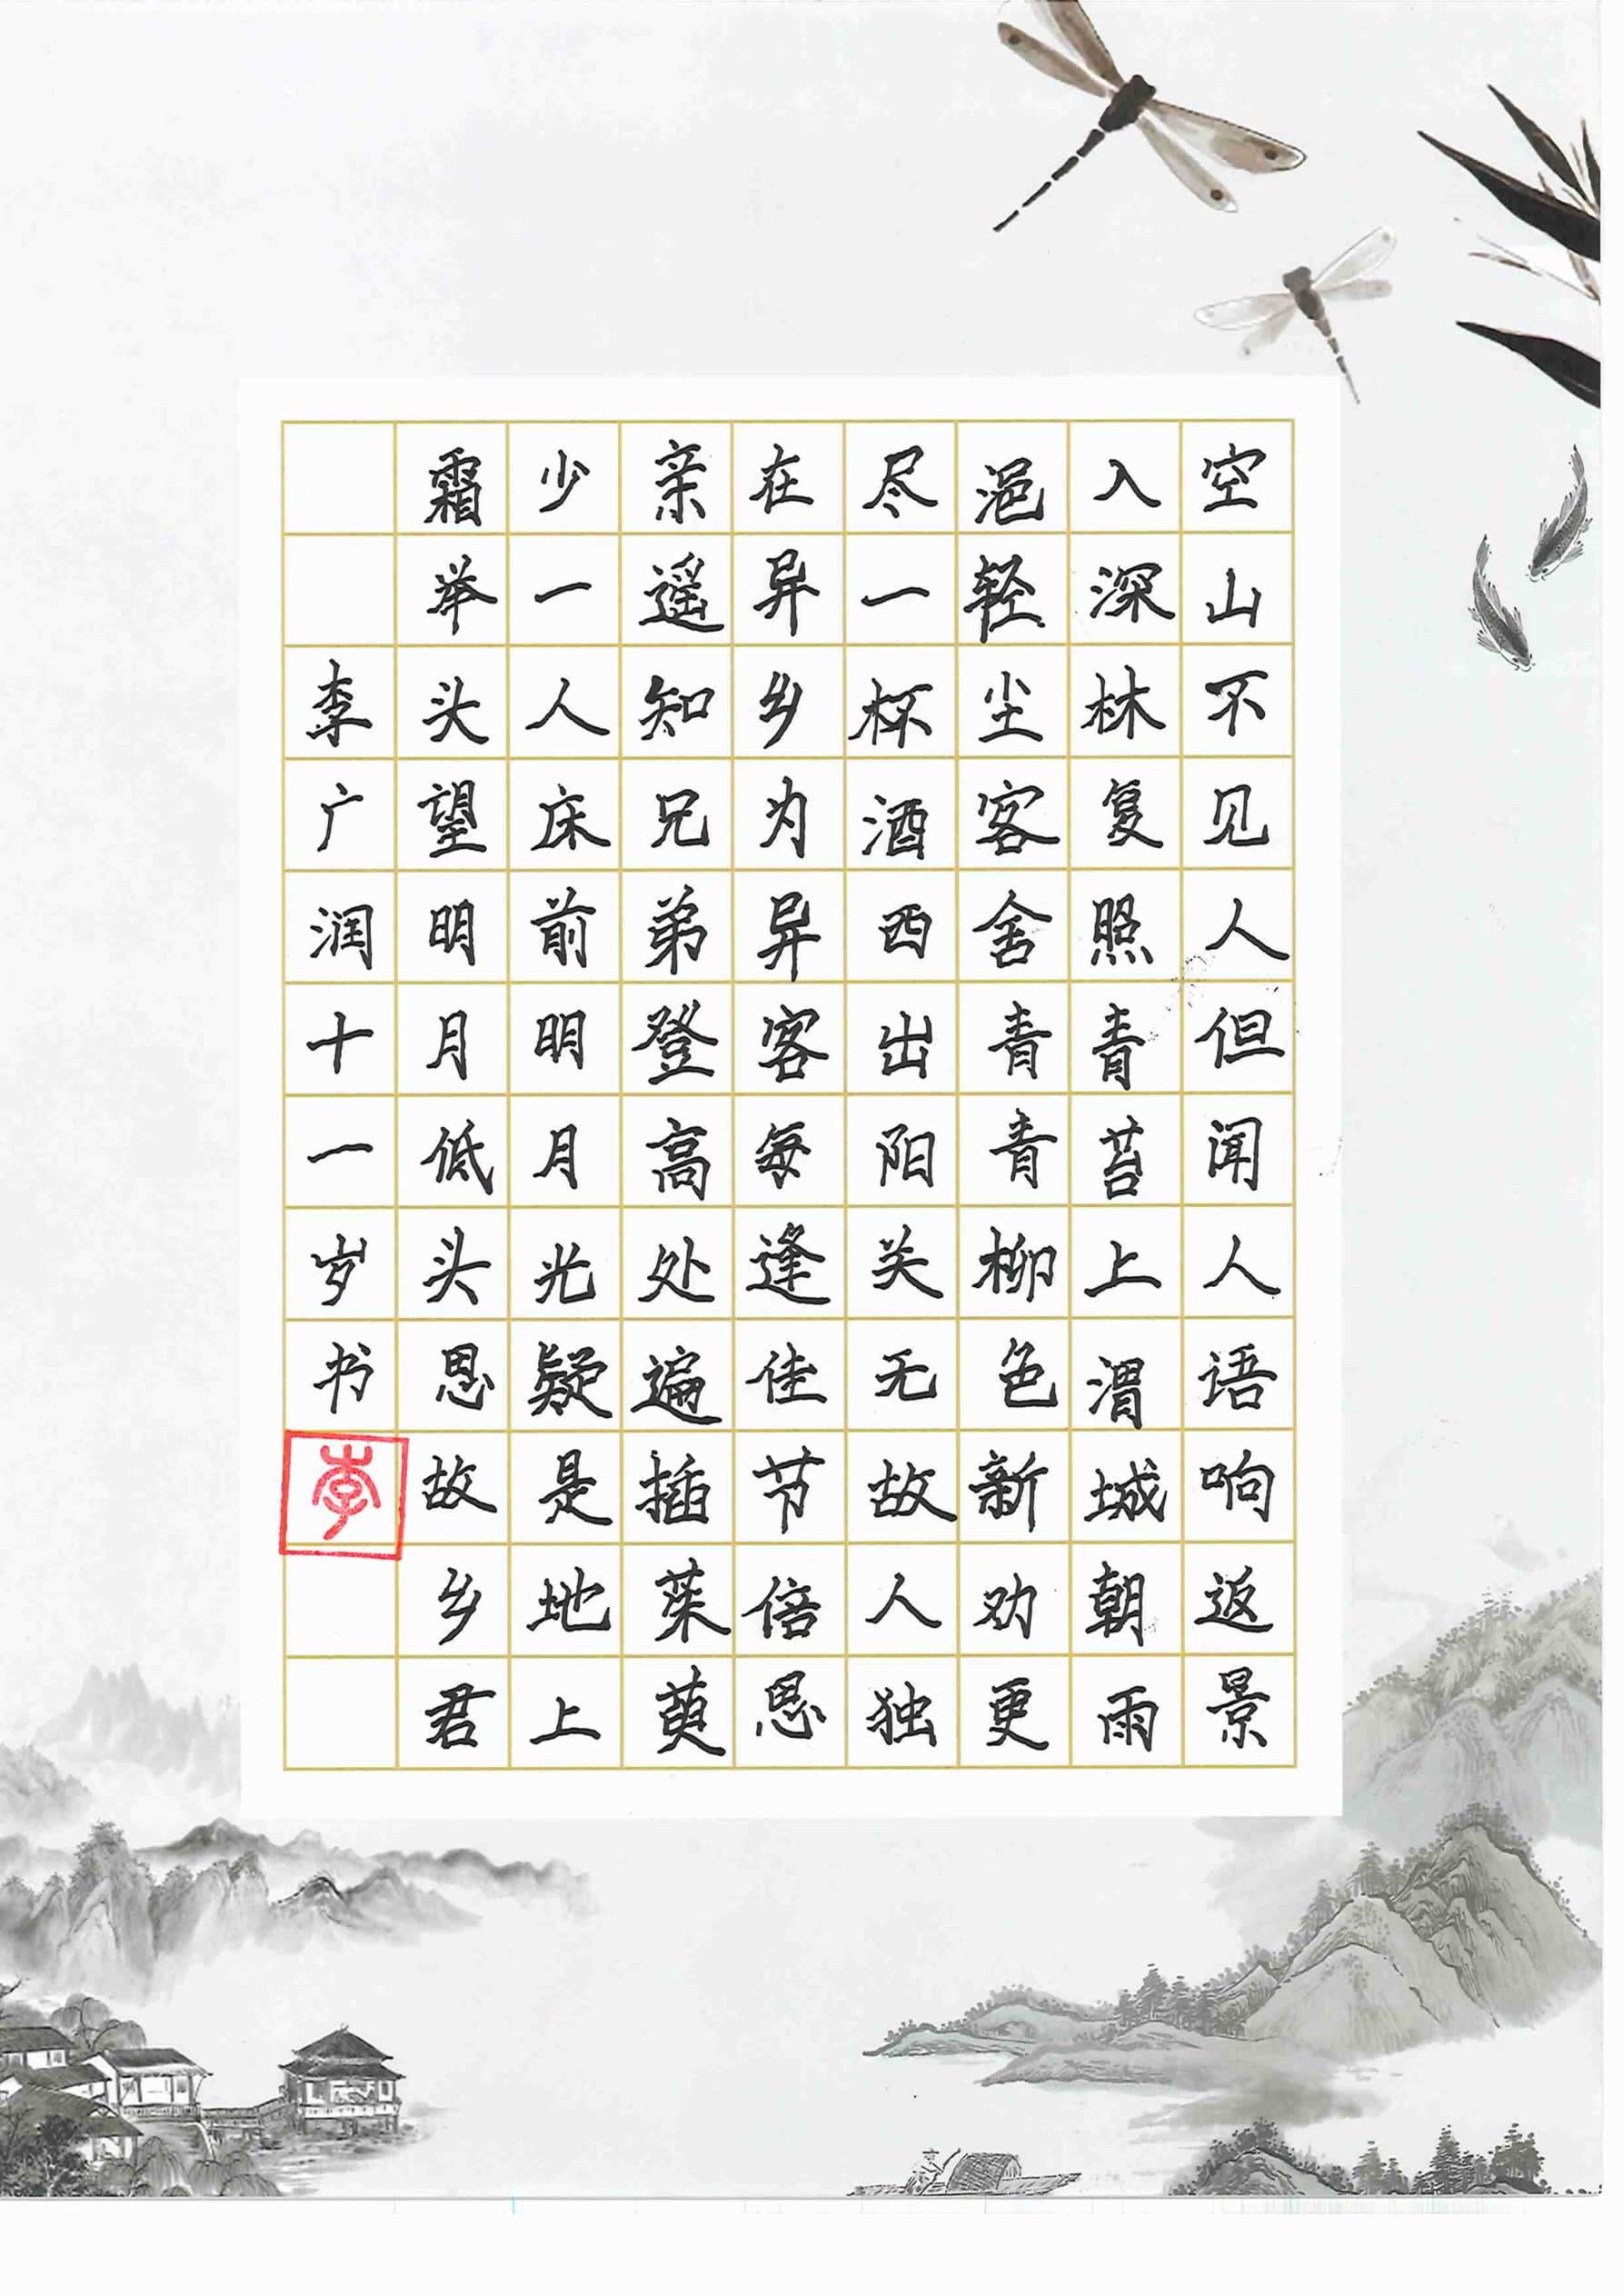 空山不见人但闻人语响返景
入深林复照青苔上渭城朝雨
浥轻尘客舍青青柳色新劝更
尽一杯酒西出阳关无故人独
在异乡为异客每逢佳节倍思
亲遥知兄弟登高处遍插茱萸
少一人床前明月光疑是地上
霜举头望明月低头思故乡君
李广润十一岁书
李